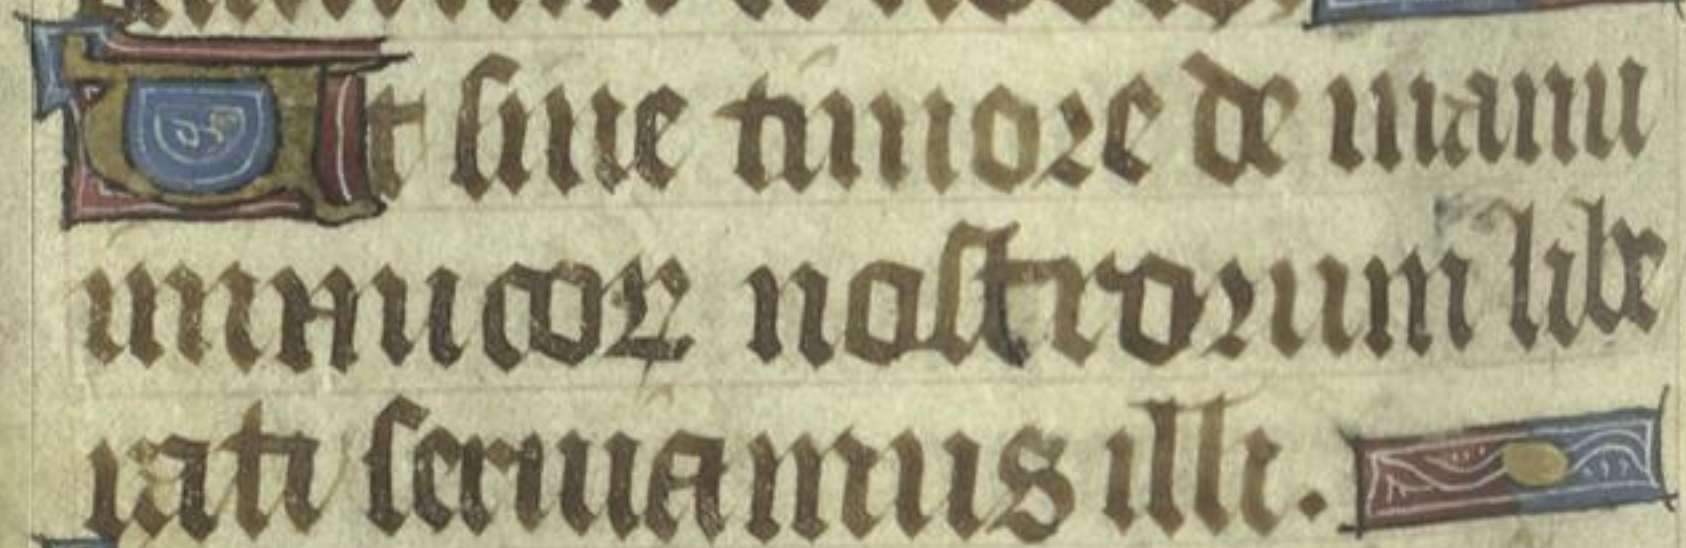 Ut sine timore de manu
inimicoꝝ nostrorum libe
rati seruiamus illi.